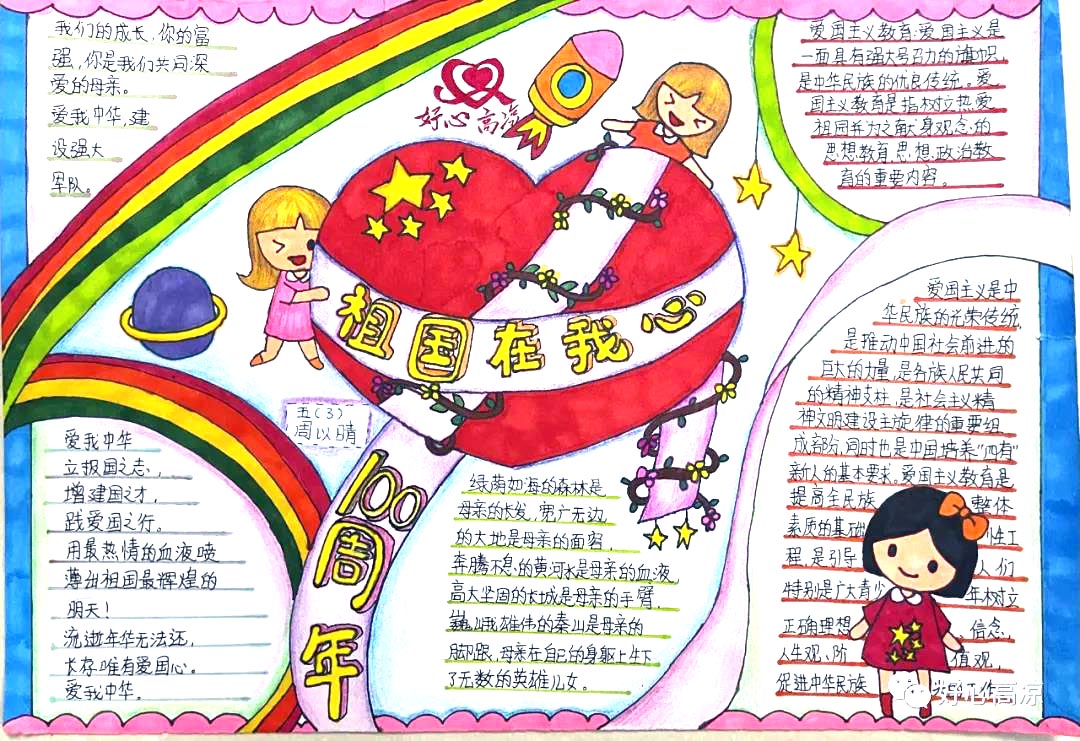 我们的成长,你的富
强,你是我们共同深
爱的母亲。
爱我中华,建
设强大
军队。
好心高凉
爱国主义教育:爱国主义是
一面具有强大号召力的旗帜,
是中华民族的优良传统。爱
国主义教育是指树立热爱
祖国并为之献身观念的
思想教育,思想政治教
育的重要内容。
祖国在我心
五(3)
周以晴
100周年
爱我中华
立报国之志,
增建国之才,
践爱国之行。
用最热情的血液喷
薄出祖国最辉煌的
明天!
流逝年华无法还,
长存唯有爱国心。
爱我中华。
绿荫如海的森林是
母亲的长发,宽广无边
的大地是母亲的面容,
奔腾不息的黄河水是母亲的血液,
高大坚固的长城是母亲的手臂,
巍峨雄伟的泰山是母亲的
脚跟,母亲在自己的身躯上生下
了无数的英雄儿女。
爱国主义是中
华民族的光荣传统,
是推动中国社会前进的
巨大的力量,是各族人民共同
的精神支柱,是社会主义精
神文明建设主旋律的重要组
成部分,同时也是中国培养“四有”
新人的基本要求。爱国主义教育是
提高全民族 整体
素质的基础 性工
程,是引导 人们
特别是广大青少 年树立
正确理想 、信念,
人生观、阶 值观,
促进中华民族 工作
好心高凉